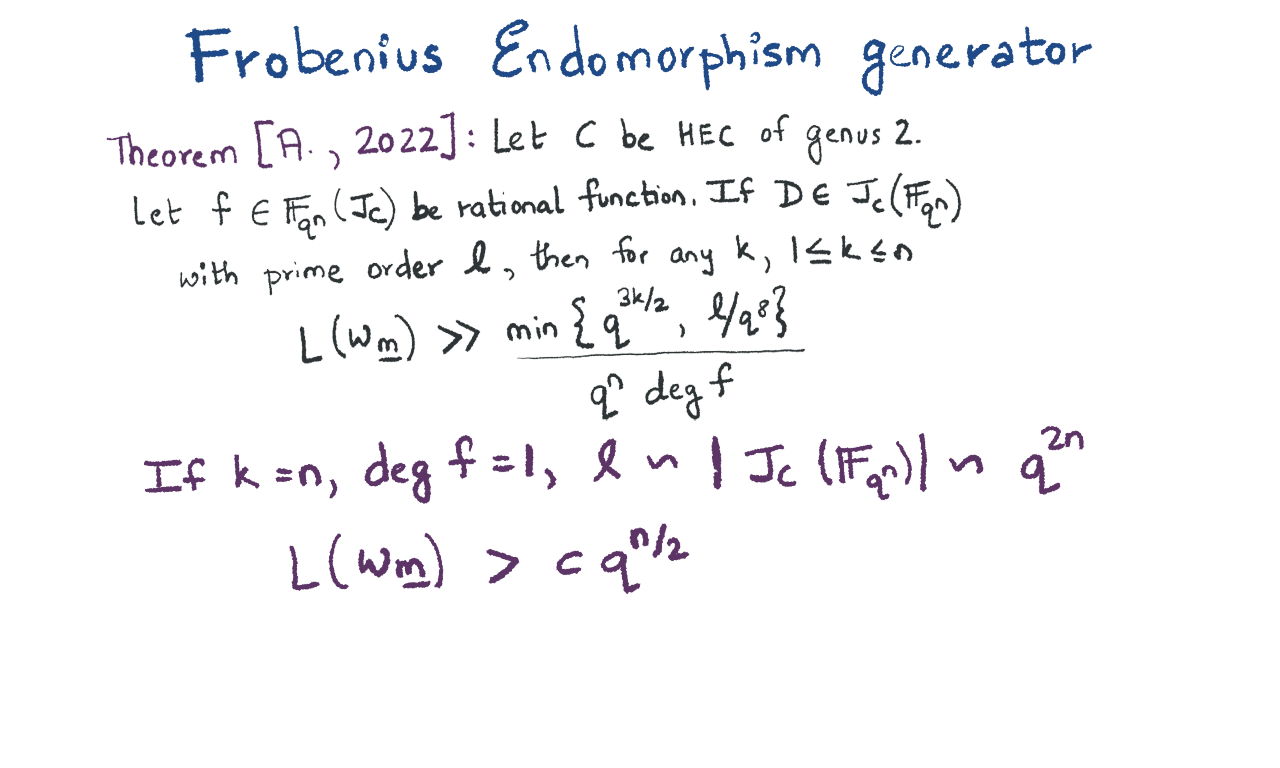 Frobenius Endomorphism generator
Theorem [A., 2022]: Let C be HEC of genus 2.
Let f ∈ 𝔽_{q^n}(J_C) be rational function. If D ∈ J_C(𝔽_{q^n})
with prime order ℓ, then for any k, 1 ≤ k ≤ n
L(w_{\underline{m}}) ≫ min { q^{3k/2}, ℓ/q^8 }
q^n deg f
If k = n, deg f = 1, ℓ ~ | J_C (𝔽_{q^n}) | ~ q^{2n}
L(w_{\underline{m}}) > c q^{n/2}